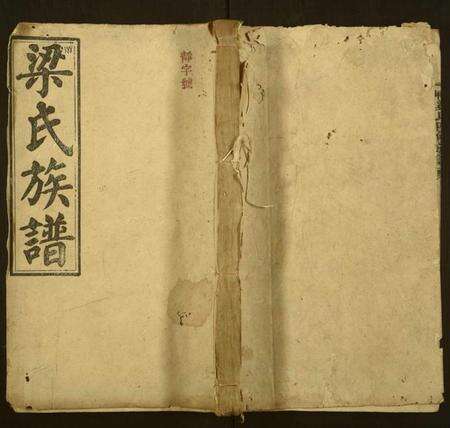 梁氏族譜
字號